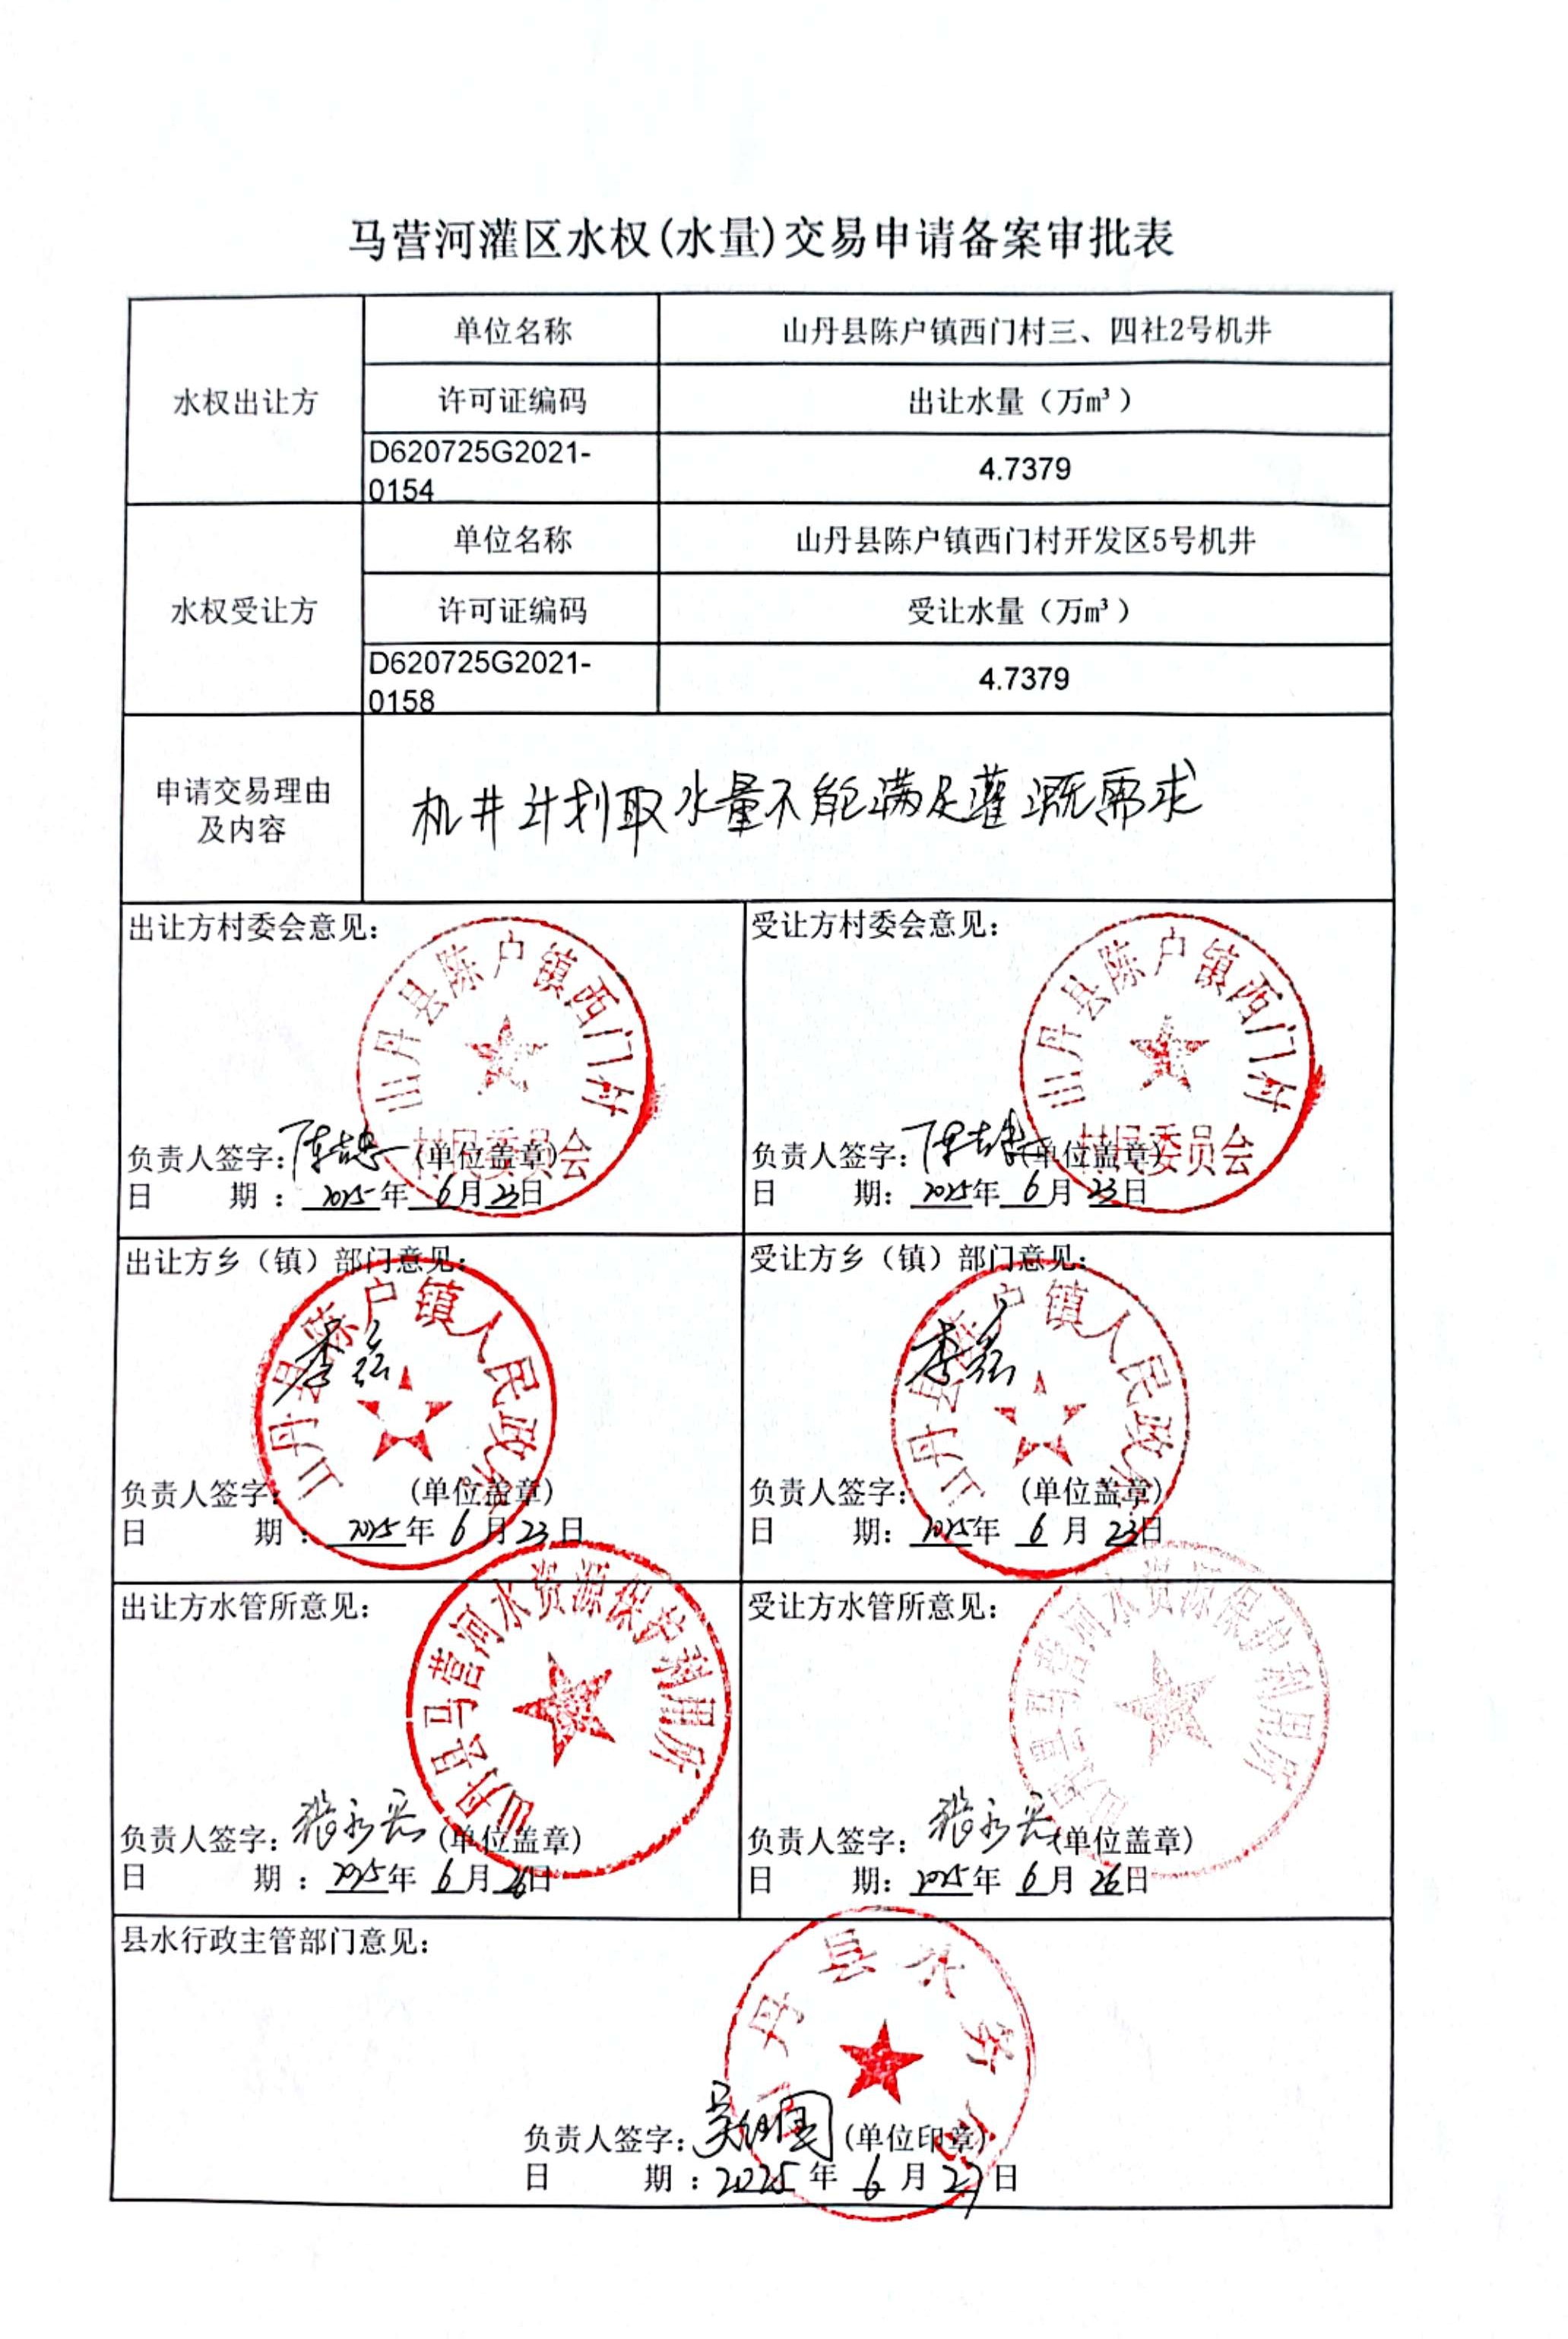 马营河灌区水权(水量)交易申请备案审批表
水权出让方
单位名称
山丹县陈户镇西门村三、四社2号机井
许可证编码
出让水量（万m³）
D620725G2021-
0154
4.7379
水权受让方
单位名称
山丹县陈户镇西门村开发区5号机井
许可证编码
受让水量（万m³）
D620725G2021-
0158
4.7379
申请交易理由
及内容
机井计划取水量不能满足灌溉需求
出让方村委会意见：
山丹县陈户镇西门村
村民委员会
负责人签字： (单位盖章)
日 期：2025年 6月23日
受让方村委会意见：
山丹县陈户镇西门村
村民委员会
负责人签字： (单位盖章)
日 期：2025年 6月23日
出让方乡（镇）部门意见：
山丹县陈户镇人民政府
李磊
负责人签字： (单位盖章)
日 期：2025年 6月23日
受让方乡（镇）部门意见：
山丹县陈户镇人民政府
李磊
负责人签字： (单位盖章)
日 期：2025年 6月23日
出让方水管所意见：
山丹县马营河水资源保护利用所
负责人签字： (单位盖章)
日 期：2025年 6月26日
受让方水管所意见：
山丹县马营河水资源保护利用所
负责人签字： (单位盖章)
日 期：2025年 6月26日
县水行政主管部门意见：
山丹县水务局
负责人签字： (单位印章)
日 期：2025年 6月27日